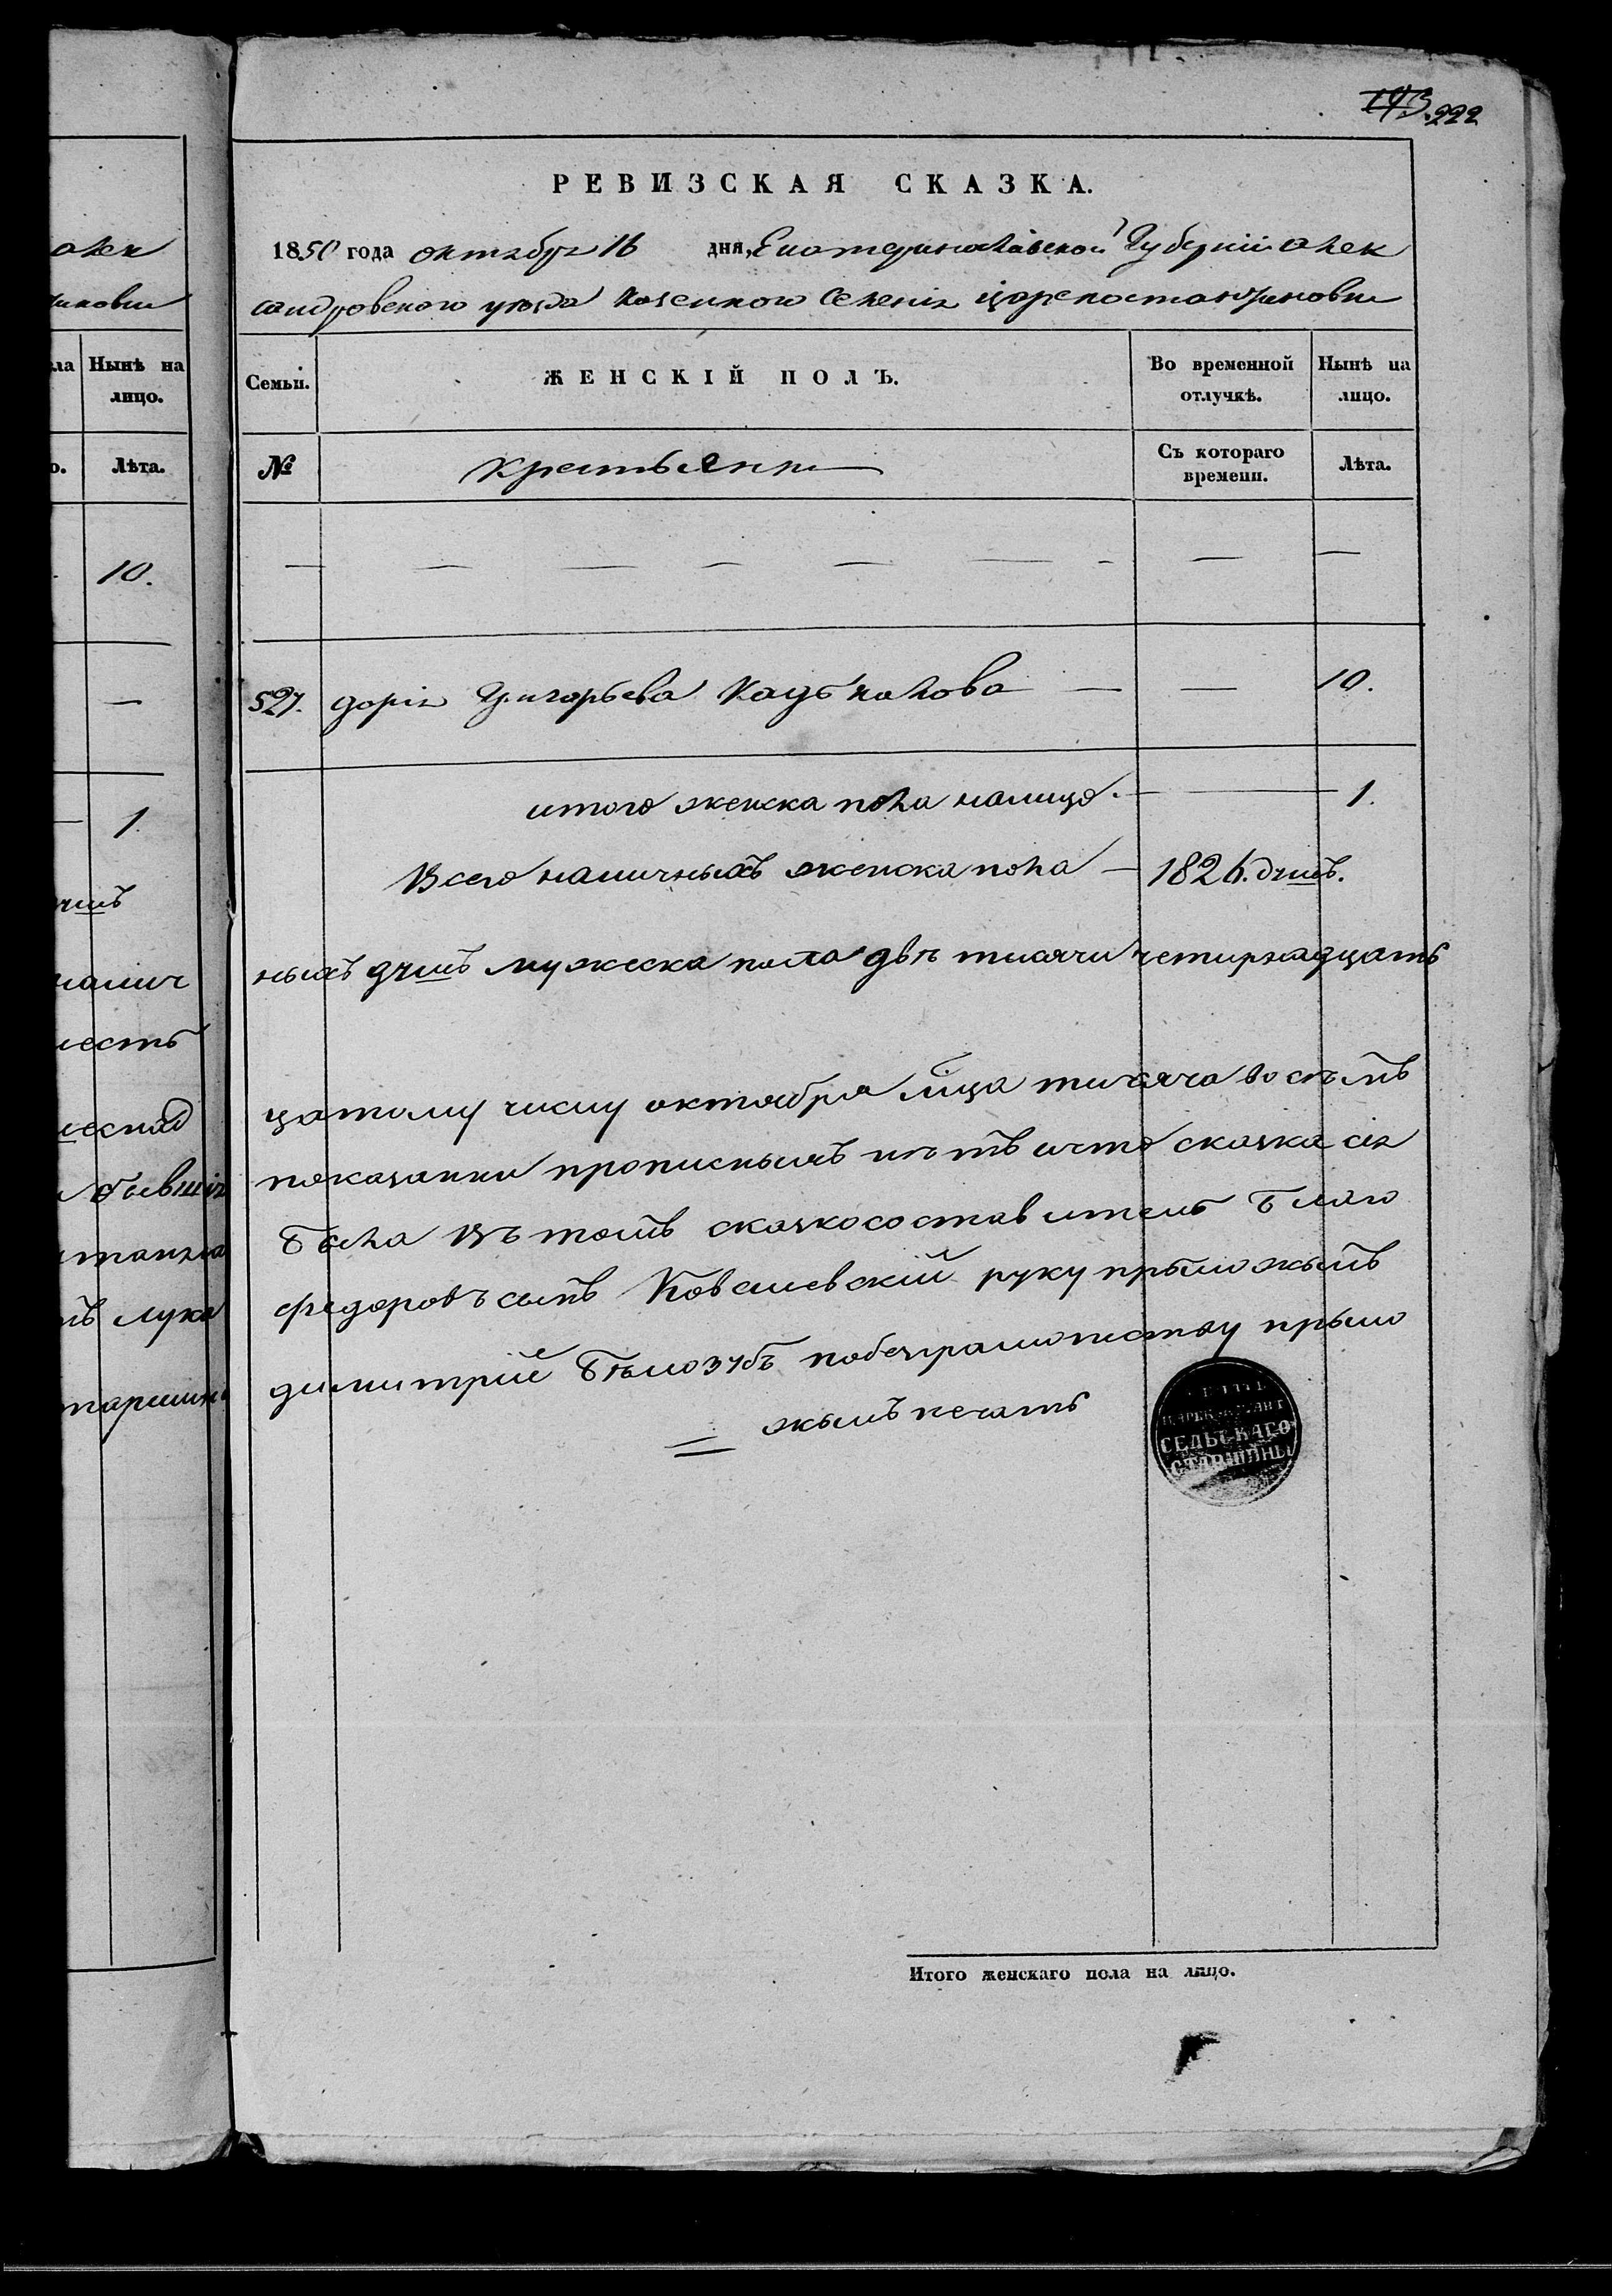 193. 222
РЕВИЗСКАЯ СКАЗКА.
1850 года октября 16 дня, Екатеринославской Губернии Алек
сандровского уезда Казенного Селенія Цареконстантиновки
Семьи.
ЖЕНСКІЙ ПОЛЪ.
Во временной отлучкѣ.
Нынѣ на лицо.
№
крестьянки
Съ котораго времени.
Лѣта.
— — — — — — — —
527. дарія Григорьева Кадькалова — — 10.
итого женска пола налицо — 1.
Всего наличныхъ женска пола — 1826. душъ.
ныхъ душъ мужеска пола двѣ тисячи четирнадцать
цатому числу октября мца тисяча восѣмъ
показанни прописныхъ нѣтъ ичто сказка сія
была Въ томъ сказкосоставитель
федоровъ сынъ Ковалевскій руку прыложылъ
димитрій Бѣлозубъ побезграмотству прыло
жылъ печать
СЕЛЬСКАГО
СТАРШИНЫ
Итого женскаго пола на лицо.
Алек
иновки
ла
Нынѣ на
лицо.
о.
Лѣта.
10.
—
— 1.
душъ
налич
бывшія
лука
таршина